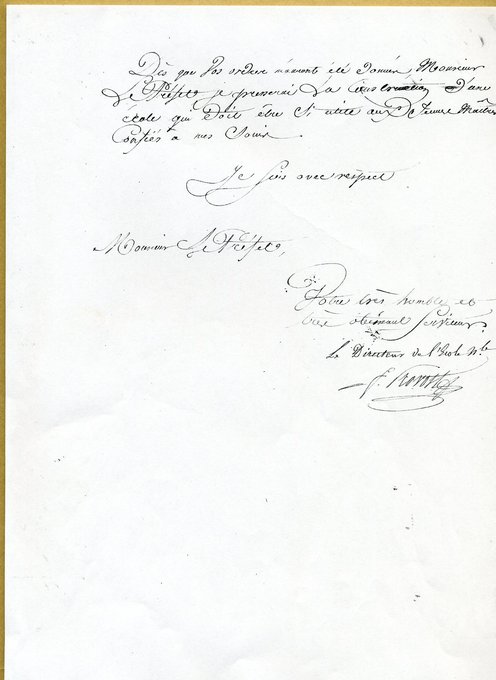 Dès que Vos ordres m'auront été donnés, Monsieur
Le Préfet, je presserai La Construction d'une
école qui Doit être Si utile aux Jeunes Maîtres
Confiés à mes Soins.
Je Suis avec respect
Monsieur Le Préfet,
Votre très humble et
très obéissant Serviteur.
Le Directeur de l'école N.le